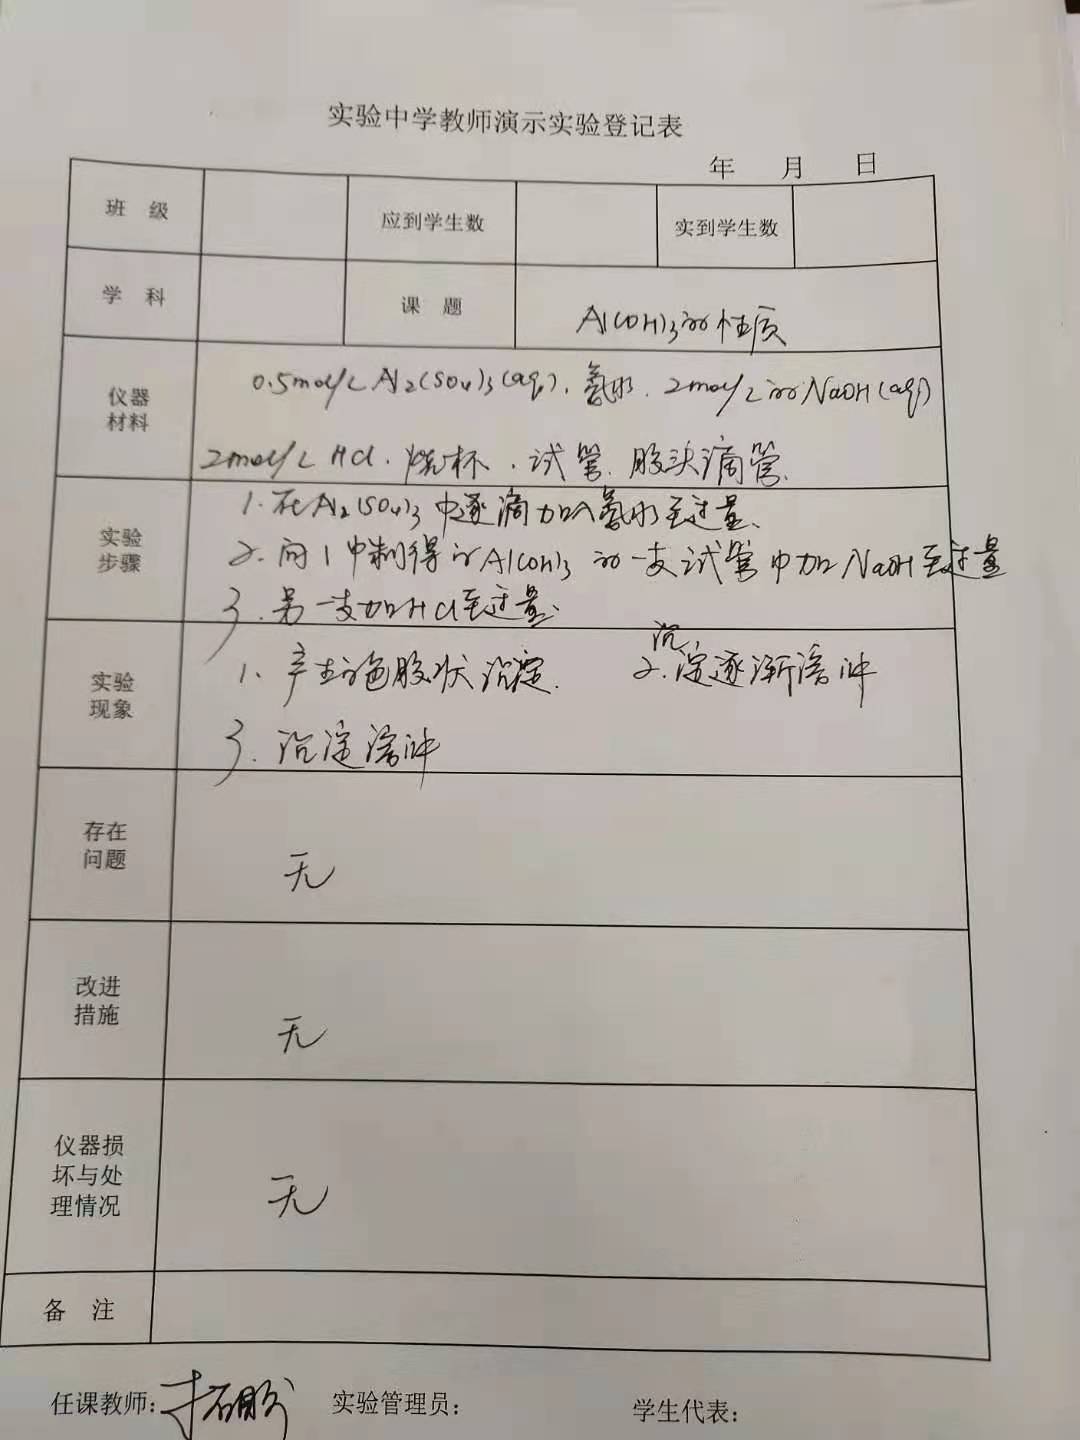 实验中学教师演示实验登记表
年 月 日
班 级 应到学生数 实到学生数
学 科 课 题 Al(OH)3的性质
仪器材料 0.5mol/L Al2(SO4)3(aq)、氨水、2mol/L的NaOH(aq)
2mol/L HCl、烧杯、试管、胶头滴管
实验步骤 1.在Al2(SO4)3中逐滴加入氨水至过量、
2.向1中制得的Al(OH)3的一支试管中加NaOH至过量
3.另一支加HCl至过量、
实验现象 1、产生白色胶状沉淀. 2.沉淀逐渐溶解
3.沉淀溶解
存在问题 无
改进措施 无
仪器损坏与处理情况 无
备 注
任课教师: 实验管理员: 学生代表: